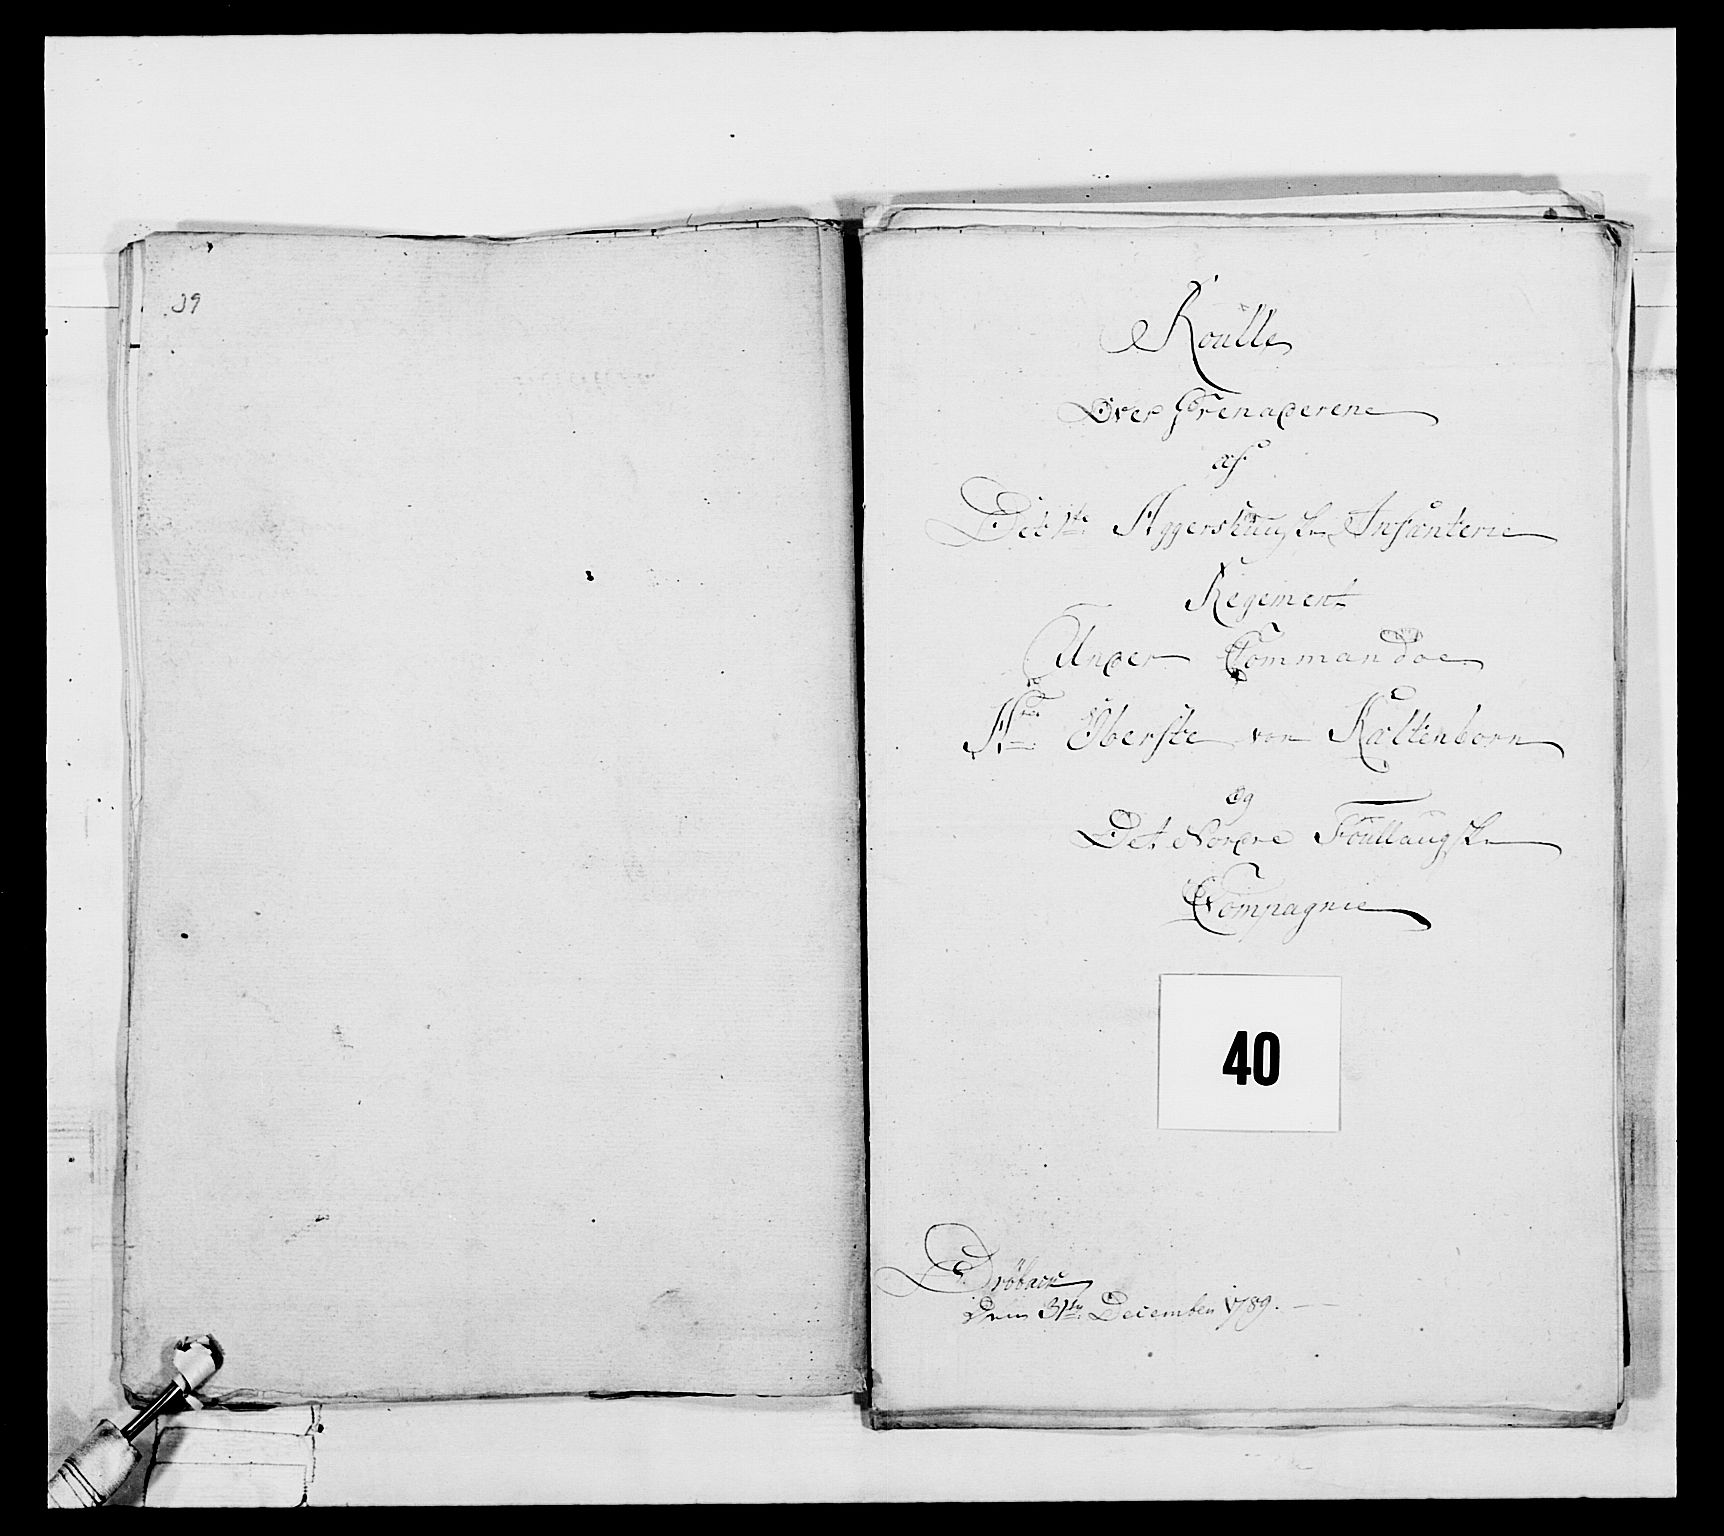 39
Roulle
Over Grenaderene
af
Det 1te Aggershuuske Infanterie
Regement
Under Commandoe
Hr: Oberste von Kaltenborn
og
Det Nordre Foullaugske
Compagnie
40
Dröback
Den 31te December 1789.